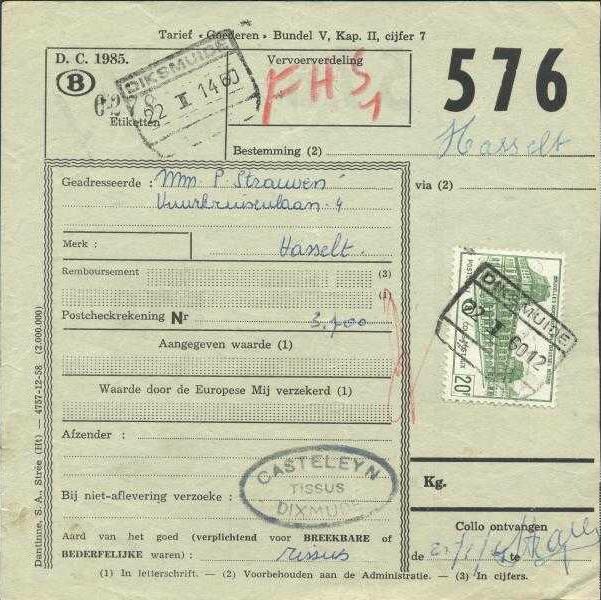 Tarief « Goederen » Bundel V, Kap. II, cijfer 7
D. C. 1985.
B
Etiketten
DIKSMUIDE
22 II 14 60
Vervoerverdeling
FHS1
576
Bestemming (2) Hasselt
Geadresseerde : Mm P. Strauven
4
via (2)
Merk :
Hasselt.
Remboursement (3)
(1)
Postcheckrekening Nr 3.700
Aangegeven waarde (1)
Waarde door de Europese Mij verzekerd (1)
DIKSMUIDE
22 II 60 12
20F
Afzender :
CASTELEYN
TISSUS
DIXMUDE
Bij niet-aflevering verzoeke :
Kg.
Aard van het goed (verplichtend voor BREEKBARE of
BEDERFELIJKE waren) : tissus
Collo ontvangen
de
te
(1) In letterschrift. — (2) Voorbehouden aan de Administratie. — (3) In cijfers.
Dantinne, S. A., Strée (Ht) — 4757-12-58 (2.000.000)